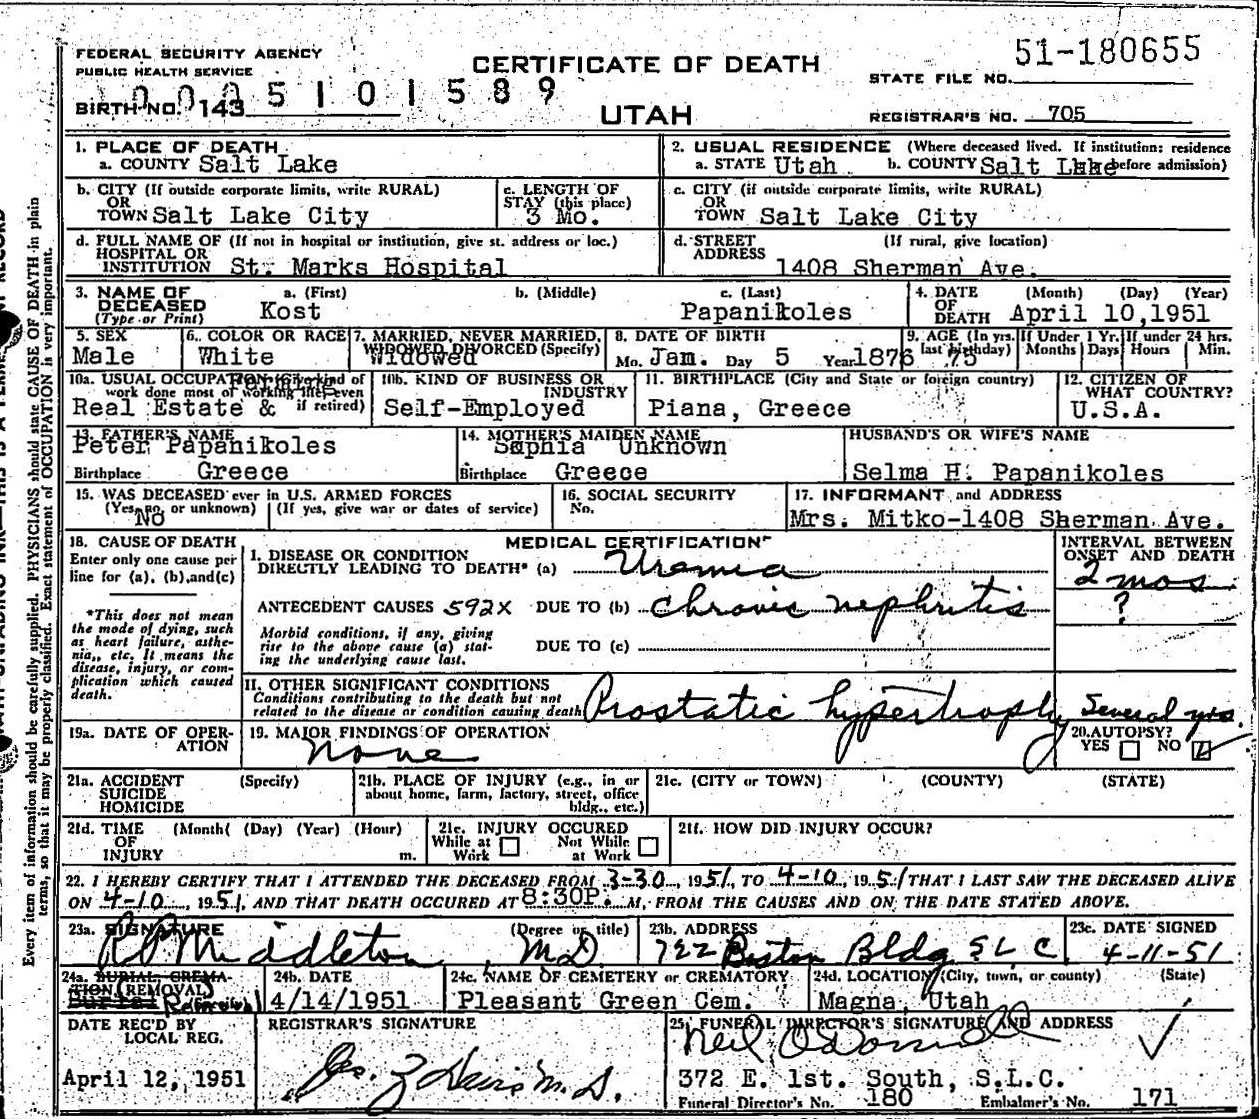 FEDERAL SECURITY AGENCY
PUBLIC HEALTH SERVICE
CERTIFICATE OF DEATH
51-180655
STATE FILE NO.
BIRTH NO. 143 5101589
UTAH
REGISTRAR'S NO. 705
1. PLACE OF DEATH
a. COUNTY Salt Lake
2. USUAL RESIDENCE (Where deceased lived. If institution: residence before admission)
a. STATE Utah b. COUNTY Salt Lake
b. CITY (If outside corporate limits, write RURAL)
OR
TOWN Salt Lake City
c. LENGTH OF
STAY (this place)
3 Mo.
c. CITY (if outside corporate limits, write RURAL)
OR
TOWN Salt Lake City
d. FULL NAME OF (If not in hospital or institution, give st. address or loc.)
HOSPITAL OR
INSTITUTION St. Marks Hospital
d. STREET (If rural, give location)
ADDRESS
1408 Sherman Ave.
3. NAME OF a. (First) b. (Middle) c. (Last)
DECEASED
(Type or Print) Kost Papanikoles
4. DATE (Month) (Day) (Year)
OF
DEATH April 10,1951
5. SEX
Male
6. COLOR OR RACE
White
7. MARRIED, NEVER MARRIED,
WIDOWED, DIVORCED (Specify)
Widowed
8. DATE OF BIRTH
Mo. Jan. Day 5 Year 1876
9. AGE (In yrs. last birthday) 75
If Under 1 Yr. Months Days
If under 24 hrs. Hours Min.
10a. USUAL OCCUPATION (Give kind of
work done most of working life, even
if retired)
Real Estate &
10b. KIND OF BUSINESS OR
INDUSTRY
Self-Employed
11. BIRTHPLACE (City and State or foreign country)
Piana, Greece
12. CITIZEN OF
WHAT COUNTRY?
U.S.A.
13. FATHER'S NAME
Peter Papanikoles
Birthplace Greece
14. MOTHER'S MAIDEN NAME
Sophia Unknown
Birthplace Greece
HUSBAND'S OR WIFE'S NAME
Selma H. Papanikoles
15. WAS DECEASED ever in U.S. ARMED FORCES
(Yes, no, or unknown) (If yes, give war or dates of service)
No
16. SOCIAL SECURITY
No.
17. INFORMANT and ADDRESS
Mrs. Mitko-1408 Sherman Ave.
18. CAUSE OF DEATH
Enter only one cause per
line for (a), (b), and (c)
*This does not mean
the mode of dying, such
as heart failure, asthe-
nia, etc. It means the
disease, injury, or com-
plication which caused
death.
MEDICAL CERTIFICATION
INTERVAL BETWEEN
ONSET AND DEATH
I. DISEASE OR CONDITION
DIRECTLY LEADING TO DEATH* (a) Uremia 2 mos.
ANTECEDENT CAUSES 592X DUE TO (b) Chronic nephritis ?
Morbid conditions, if any, giving
rise to the above cause (a) stat-
ing the underlying cause last.
DUE TO (c)
II. OTHER SIGNIFICANT CONDITIONS
Conditions contributing to the death but not
related to the disease or condition causing death
Prostatic hypertrophy Several yrs.
19a. DATE OF OPER-
ATION
19. MAJOR FINDINGS OF OPERATION
None
20. AUTOPSY?
YES NO
21a. ACCIDENT (Specify)
SUICIDE
HOMICIDE
21b. PLACE OF INJURY (e.g., in or
about home, farm, factory, street, office
bldg., etc.)
21c. (CITY or TOWN) (COUNTY) (STATE)
21d. TIME (Month( (Day) (Year) (Hour)
OF
INJURY m.
21e. INJURY OCCURED
While at Work Not While at Work
21f. HOW DID INJURY OCCUR?
22. I HEREBY CERTIFY THAT I ATTENDED THE DECEASED FROM 3-30, 1951, TO 4-10, 1951 THAT I LAST SAW THE DECEASED ALIVE
ON 4-10, 1951, AND THAT DEATH OCCURED AT 8:30P. M, FROM THE CAUSES AND ON THE DATE STATED ABOVE.
23a. SIGNATURE (Degree or title)
R P Middleton MD
23b. ADDRESS
722 Boston Bldg S L C
23c. DATE SIGNED
4-11-51
24a. BURIAL, CREMA-
TION (REMOVAL)
(Specify)
Burial Removal
24b. DATE
4/14/1951
24c. NAME OF CEMETERY or CREMATORY
Pleasant Green Cem.
24d. LOCATION (City, town, or county) (State)
Magna, Utah
DATE REC'D BY
LOCAL REG.
April 12, 1951
REGISTRAR'S SIGNATURE
25. FUNERAL DIRECTOR'S SIGNATURE AND ADDRESS
Neil O'Donnell
372 E. 1st. South, S.L.C.
Funeral Director's No. 180 Embalmer's No. 171
Every item of information should be carefully supplied. PHYSICIANS should state CAUSE OF DEATH in plain
terms, so that it may be properly classified. Exact statement of OCCUPATION is very important.